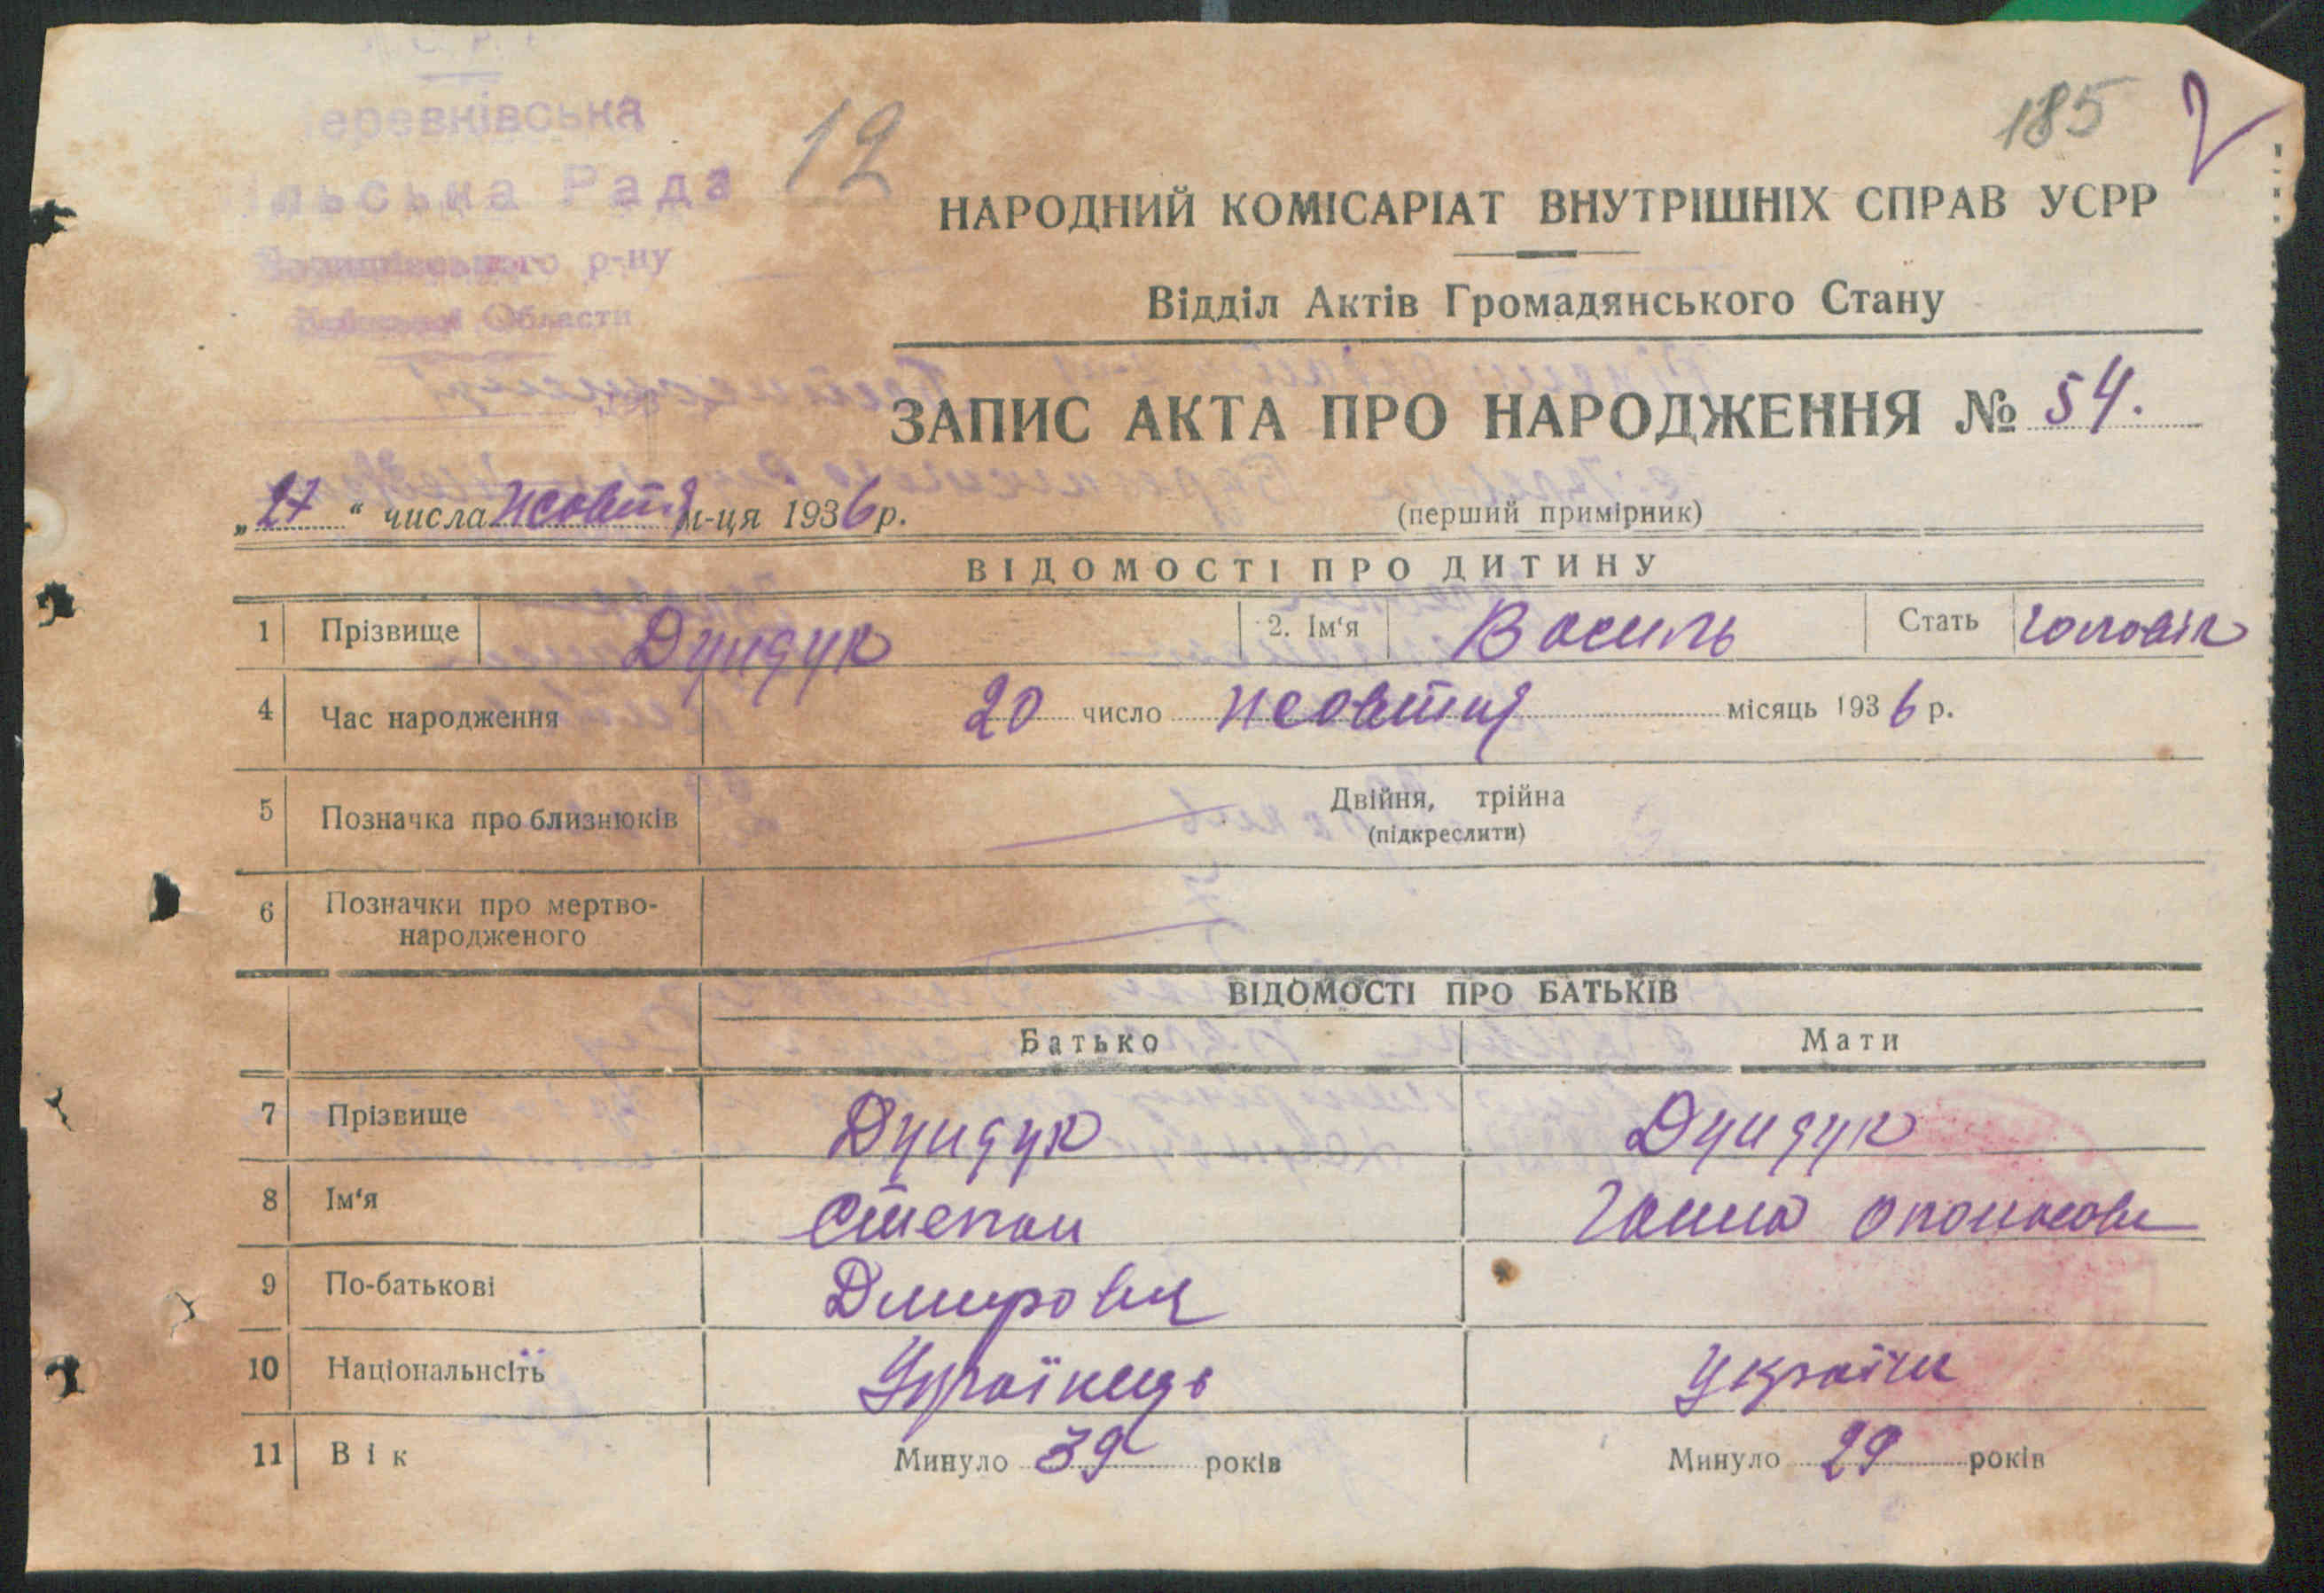 185
12
Рада
р-ну
Области
НАРОДНИЙ КОМІСАРІАТ ВНУТРІШНІХ СПРАВ УСРР
Відділ Актів Громадянського Стану
ЗАПИС АКТА ПРО НАРОДЖЕННЯ № 54.
„27“ числа жовтня м-ця 1936 р.
(перший примірник)
ВІДОМОСТІ ПРО ДИТИНУ
1 Прізвище Дундук 2. Ім'я Василь Стать чоловік
4 Час народження 20 число жовтня місяць 1936 р.
5 Позначка про близнюків Двійня, трійна
(підкреслити)
6 Позначки про мертво-
народженого
ВІДОМОСТІ ПРО БАТЬКІВ
Батько Мати
7 Прізвище Дундук Дундук
8 Ім'я Степан Ганна
9 По-батькові Дмиров
10 Національнсіть Українець Україн
11 Вік Минуло 39 років Минуло 29 років